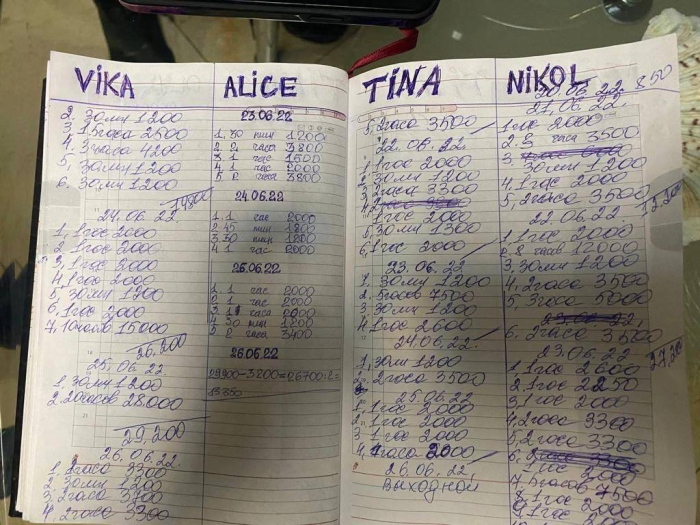 VIKA
2. 30ми 1200
3. 1,5часа 2500
4. 3часа 4200
5, 30ми 1200
6. 30ми 1200
24.06.22
1, 1час 2000
2. 1час 2000
3, 1час 2000
4, 1час 2000
5, 30ми 1200
6, 1час 2000
7, 10часов 15000
26,200
25,06.22
1, 30ми 1200
2. 20часов 28000
29,200
26,06.22
1, 2часа 3300
2, 30ми 1200
3, 2часа 3700
4, 2часа 3300
ALICE
23.06.22
1, 30 мин 1200
2. 2 часа 3800
3 1 час 1600
4 1 час 2000
5 2 часа 3800
24.06.22
1. 1 час 2000
2 45 мин 1800
3 30 мин 1200
4 1 час 2000
25.06.22
1 1 час 2000
2 1 час 2000
3 1 часа 2000
4 30 мин 1200
5 2 часа 3400
26.06.22
TINA
5, 2часа 3500
22.06.22.
1, 1час 2000
2, 30ми 1200
3, 2часа 3300
1час 2000
5, 30ми 1300
6, 1час 2000
23.06.22
1, 30ми 1200
2. 5часов 7500
3, 30ми 1200
4, 1час 2600
24.06.22
1, 30ми 1200
2часа 3500
25.06.22
1, 1час 2000
2. 1час 2000
3, 1час 2000
4. 1часа 2000
26.06.22
выходной
NIKOL
20.06.22. 850
21,06.22.
1час 2000
2. 2 часа 3500
3
30ми 1200
4, 1час 2000
5, 2часа 3500
22.06.22
1, 1час 2000
2. 8 часов 12000
3, 30ми 1200
4, 2часа 3500
5, 3часа 5000
6. 2часа 3500
27,200
23.06.22
1, 1час 2600
2, 1час 2250
3, 1час 2000
4, 2часа 3300
5, 2часа 3300
1час 2000
7, 5часов 7500
8, 1час 2000